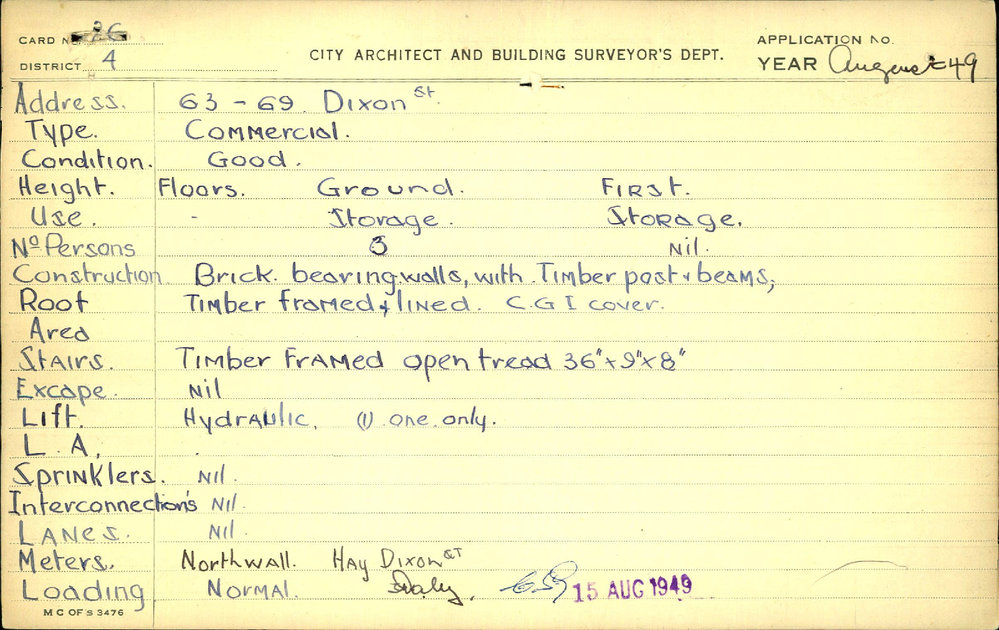 CARD No. 26
DISTRICT 4
CITY ARCHITECT AND BUILDING SURVEYOR'S DEPT.
APPLICATION NO.
YEAR August 49
Address. 63 - 69 Dixon St.
Type. Commercial.
Condition. Good.
Height. Floors. Ground. First.
Use. - Storage. Storage.
No Persons 3 Nil.
Construction Brick bearing walls, with Timber post + beams,
Roof Timber framed + lined. C.G.I cover.
Area
Stairs. Timber framed open tread 36"x9"x8"
Excape. Nil
Lift. Hydraulic. (1) one only.
L.A, .
Sprinklers. Nil.
Interconnection's Nil.
Lanes. Nil.
Meters. North wall. Hay Dixon St
Loading Normal. Daly. 15 AUG 1949
M C OF S 3476